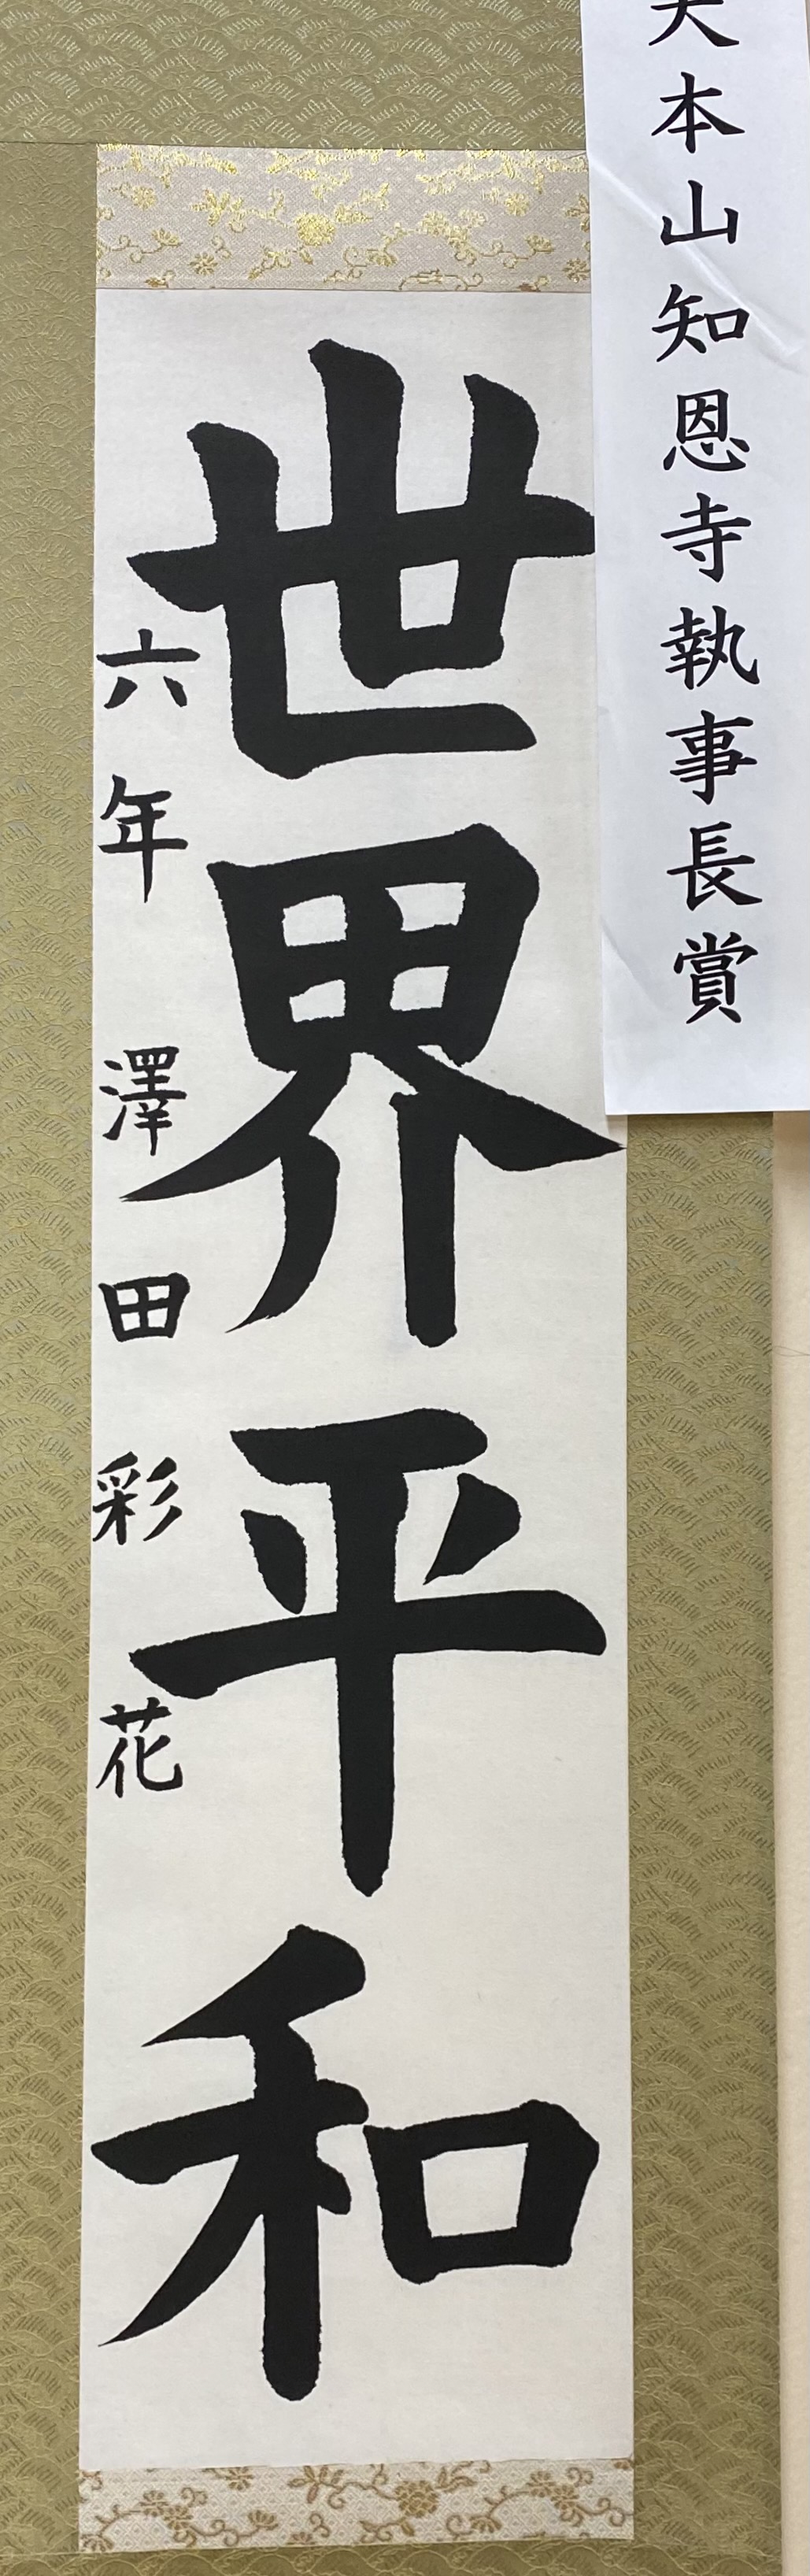 本山知恩寺執事長賞
世界平和
六年 澤田彩花